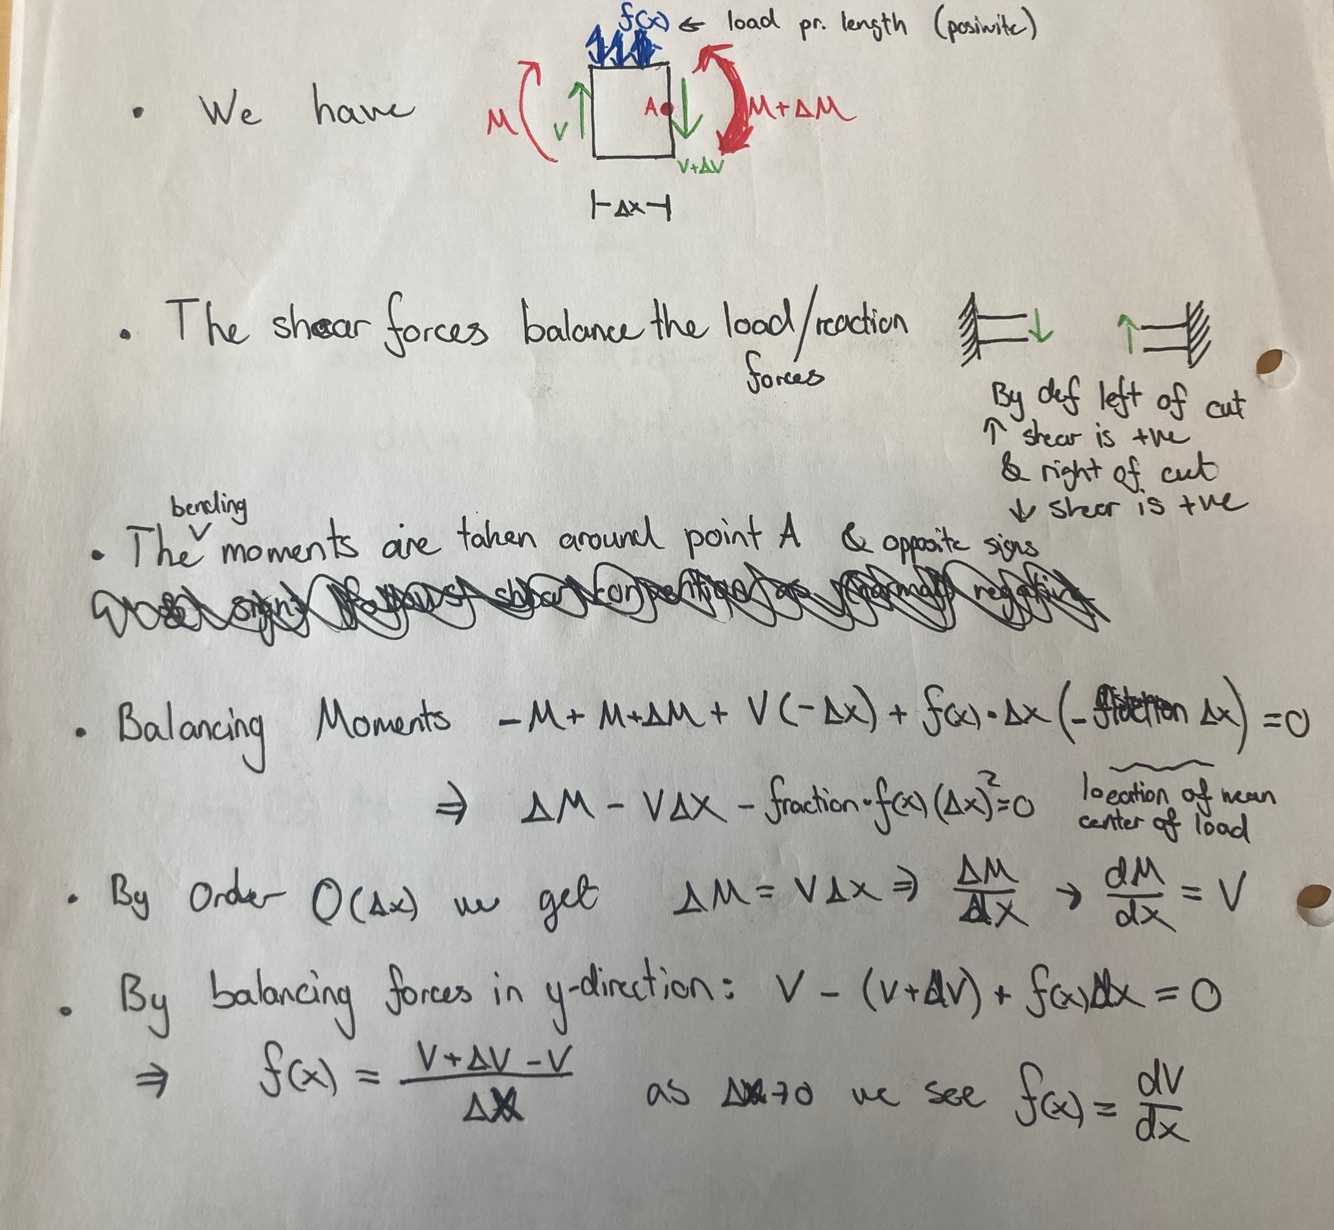 f(x) ← load pr. length (posiwite)
• We have M V A M+ΔM
V+ΔV
Δx
• The shear forces balance the load/reaction
forces
By def left of cut
↑ shear is +ve
& right of cut
↓ shear is +ve
bending
• The ˅ moments are taken around point A & opposite signs
• Balancing Moments -M+M+ΔM+V(-Δx)+f(x)·Δx(- Δx)=0
⇒ ΔM - VΔX - fraction·f(x)(Δx)²=0
location of mean
center of load
• By Order O(Δx) we get ΔM = VΔx ⇒ ΔM/Δx → dM/dx = V
• By balancing forces in y-direction: V - (V+ΔV) + f(x)Δx = 0
⇒ f(x) = (V+ΔV-V)/ΔX as Δx→0 we see f(x) = dV/dx